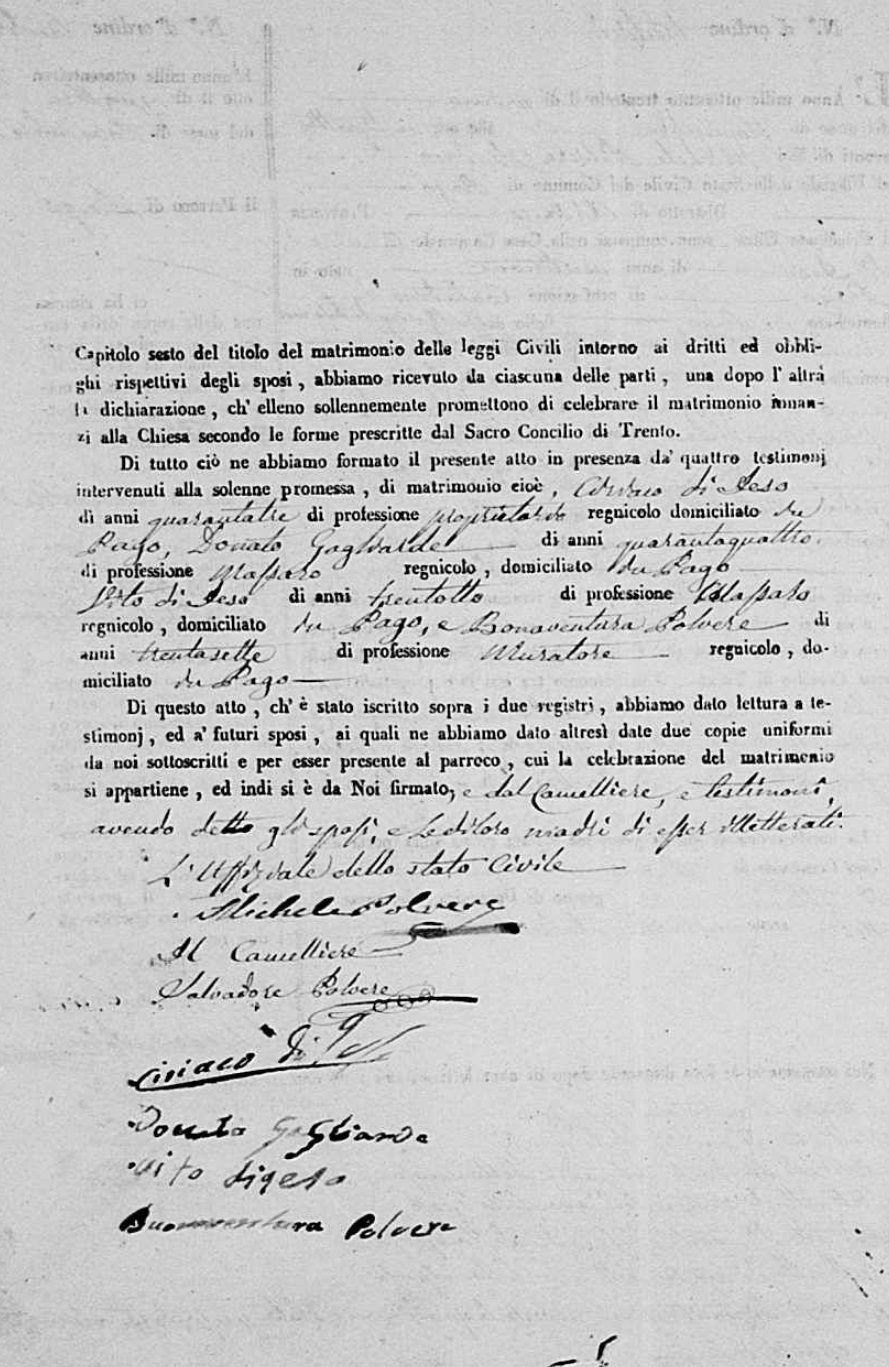 Capitolo sesto del titolo del matrimonio delle leggi Civili intorno ai dritti ed obbli-
ghi rispettivi degli sposi, abbiamo ricevuto da ciascuna delle parti, una dopo l'altra
la dichiarazione, ch'elleno sollennemente promettono di celebrare il matrimonio innan-
zi alla Chiesa secondo le forme prescritte dal Sacro Concilio di Trento.
Di tutto ciò ne abbiamo formato il presente atto in presenza da' quattro testimonj
intervenuti alla solenne promessa, di matrimonio cioè, Ciriaco di Geso
di anni quarantatre di professione proprietario regnicolo domiciliato in
Pago, Donato Gagliarde di anni quarantaquattro
di professione Massaro regnicolo, domiciliato in Pago
Vito di Geso di anni trentotto di professione Massaro
regnicolo, domiciliato in Pago, e Bonaventura Polvere di
anni trentasette di professione Muratore regnicolo, do-
miciliato in Pago
Di questo atto, ch'è stato iscritto sopra i due registri, abbiamo dato lettura a te-
stimonj, ed a' futuri sposi, ai quali ne abbiamo dato altresì date due copie uniformi
da noi sottoscritti e per esser presente al parroco, cui la celebrazione del matrimonio
si appartiene, ed indi si è da Noi firmato, e dal Cancelliere, e testimoni,
avendo detto gli sposi, e le di loro madri di esser illetterati.
L'Uffiziale dello stato Civile
Michele Polvere
Il Cancelliere
Salvadore Polvere
Ciriaco di Geso
Donato Gagliarde
Vito digeso
Buonaventura Polvere